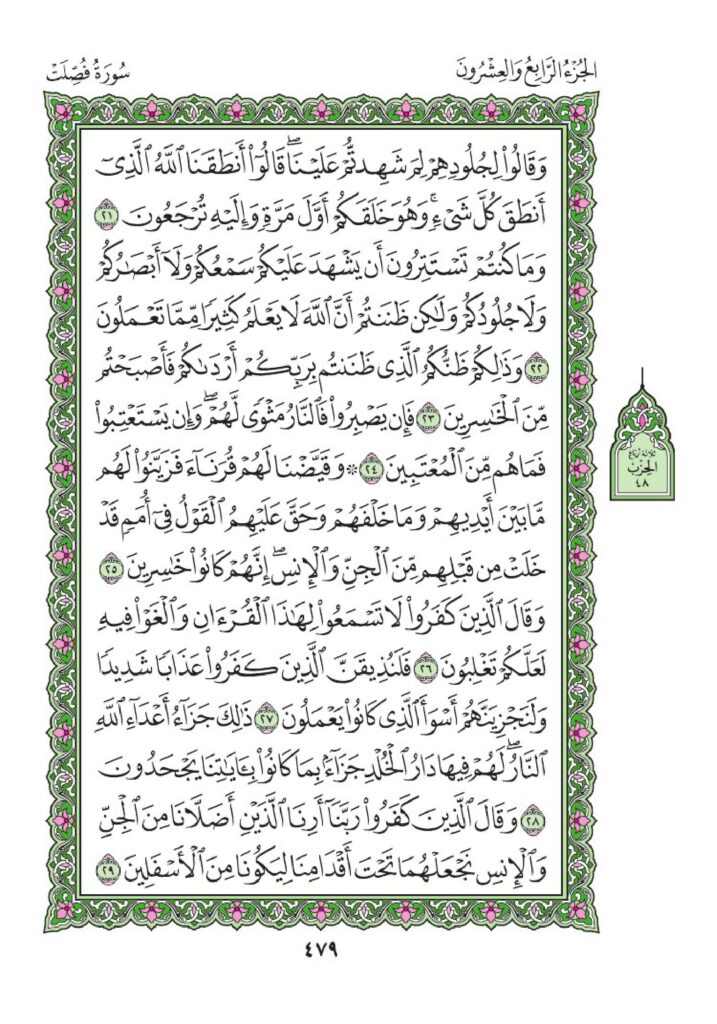 الجُزْءُ الرَّابِعُ وَالعِشْرُونَ
سُورَةُ فُصِّلَتْ
وَقَالُواْ لِجُلُودِهِمْ لِمَ شَهِدتُّمْ عَلَيْنَاۖ قَالُوٓاْ أَنطَقَنَا ٱللَّهُ ٱلَّذِيٓ
أَنطَقَ كُلَّ شَيْءٖۚ وَهُوَ خَلَقَكُمْ أَوَّلَ مَرَّةٖ وَإِلَيْهِ تُرْجَعُونَ ٢١
وَمَا كُنتُمْ تَسْتَتِرُونَ أَن يَشْهَدَ عَلَيْكُمْ سَمْعُكُمْ وَلَآ أَبْصَٰرُكُمْ
وَلَا جُلُودُكُمْ وَلَٰكِن ظَنَنتُمْ أَنَّ ٱللَّهَ لَا يَعْلَمُ كَثِيرٗا مِّمَّا تَعْمَلُونَ
٢٢ وَذَٰلِكُمْ ظَنُّكُمُ ٱلَّذِي ظَنَنتُم بِرَبِّكُمْ أَرْدَىٰكُمْ فَأَصْبَحْتُم
مِّنَ ٱلْخَٰسِرِينَ ٢٣ فَإِن يَصْبِرُواْ فَٱلنَّارُ مَثْوٗى لَّهُمْۖ وَإِن يَسْتَعْتِبُواْ
فَمَا هُم مِّنَ ٱلْمُعْتَبِينَ ٢٤ ۞ وَقَيَّضْنَا لَهُمْ قُرَنَآءَ فَزَيَّنُواْ لَهُم
مَّا بَيْنَ أَيْدِيهِمْ وَمَا خَلْفَهُمْ وَحَقَّ عَلَيْهِمُ ٱلْقَوْلُ فِيٓ أُمَمٖ قَدْ
خَلَتْ مِن قَبْلِهِم مِّنَ ٱلْجِنِّ وَٱلْإِنسِۖ إِنَّهُمْ كَانُواْ خَٰسِرِينَ ٢٥
وَقَالَ ٱلَّذِينَ كَفَرُواْ لَا تَسْمَعُواْ لِهَٰذَا ٱلْقُرْءَانِ وَٱلْغَوْاْ فِيهِ
لَعَلَّكُمْ تَغْلِبُونَ ٢٦ فَلَنُذِيقَنَّ ٱلَّذِينَ كَفَرُواْ عَذَابٗا شَدِيدٗا
وَلَنَجْزِيَنَّهُمْ أَسْوَأَ ٱلَّذِي كَانُواْ يَعْمَلُونَ ٢٧ ذَٰلِكَ جَزَآءُ أَعْدَآءِ ٱللَّهِ
ٱلنَّارُۖ لَهُمْ فِيهَا دَارُ ٱلْخُلْدِ جَزَآءَۢ بِمَا كَانُواْ بِـَٔايَٰتِنَا يَجْحَدُونَ
٢٨ وَقَالَ ٱلَّذِينَ كَفَرُواْ رَبَّنَآ أَرِنَا ٱلَّذَيْنِ أَضَلَّانَا مِنَ ٱلْجِنِّ
وَٱلْإِنسِ نَجْعَلْهُمَا تَحْتَ أَقْدَامِنَا لِيَكُونَا مِنَ ٱلْأَسْفَلِينَ ٢٩
ثلاثة أرباع
الحزب
٤٨
٤٧٩